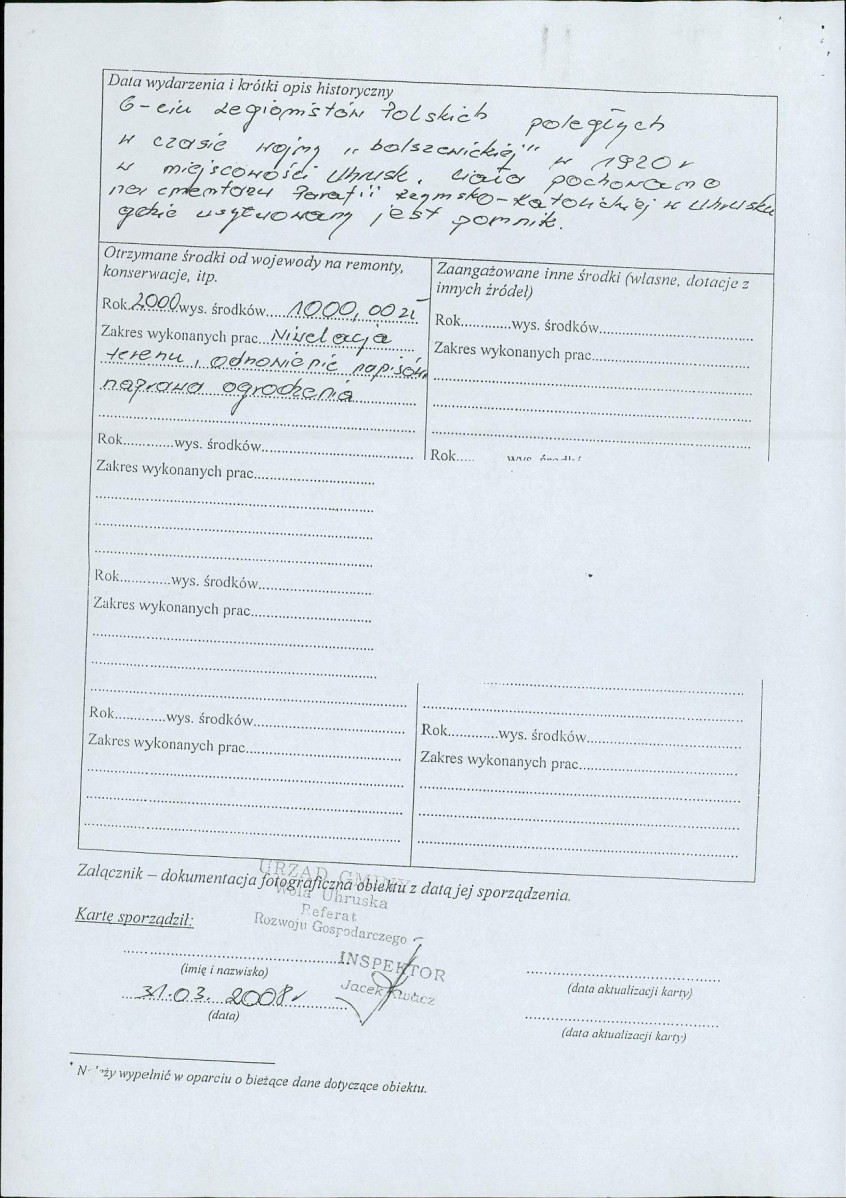 Data wydarzenia i krótki opis historyczny
6-ciu Legionistów Polskich poległych
w czasie wojny „bolszewickiej" w 1920 r
w miejscowości Uhrusk. Ciała pochowano
na cmentarzu Parafii Rzymsko-Katolickiej w Uhrusku
gdzie usytuowany jest pomnik.
Otrzymane środki od wojewody na remonty,
konserwacje, itp.
Rok 2000 wys. środków 1000,00 zł
Zakres wykonanych prac Niwelacja
terenu, odnowienie napisów
naprawa ogrodzenia
Rok............wys. środków
Zakres wykonanych prac
Rok............wys. środków
Zakres wykonanych prac
Rok............wys. środków
Zakres wykonanych prac
Zaangażowane inne środki (własne, dotacje z
innych źródeł)
Rok............wys. środków
Zakres wykonanych prac
Rok..... wys. środki
Rok............wys. środków
Zakres wykonanych prac
Załącznik – dokumentacja fotograficzna obiektu z datą jej sporządzenia.
URZĄD GMINY
Wola Uhruska
Referat
Rozwoju Gospodarczego
Kartę sporządził:
INSPEKTOR
Jacek
(imię i nazwisko)
31.03. 2008r
(data)
(data aktualizacji karty)
(data aktualizacji karty)
* Należy wypełnić w oparciu o bieżące dane dotyczące obiektu.